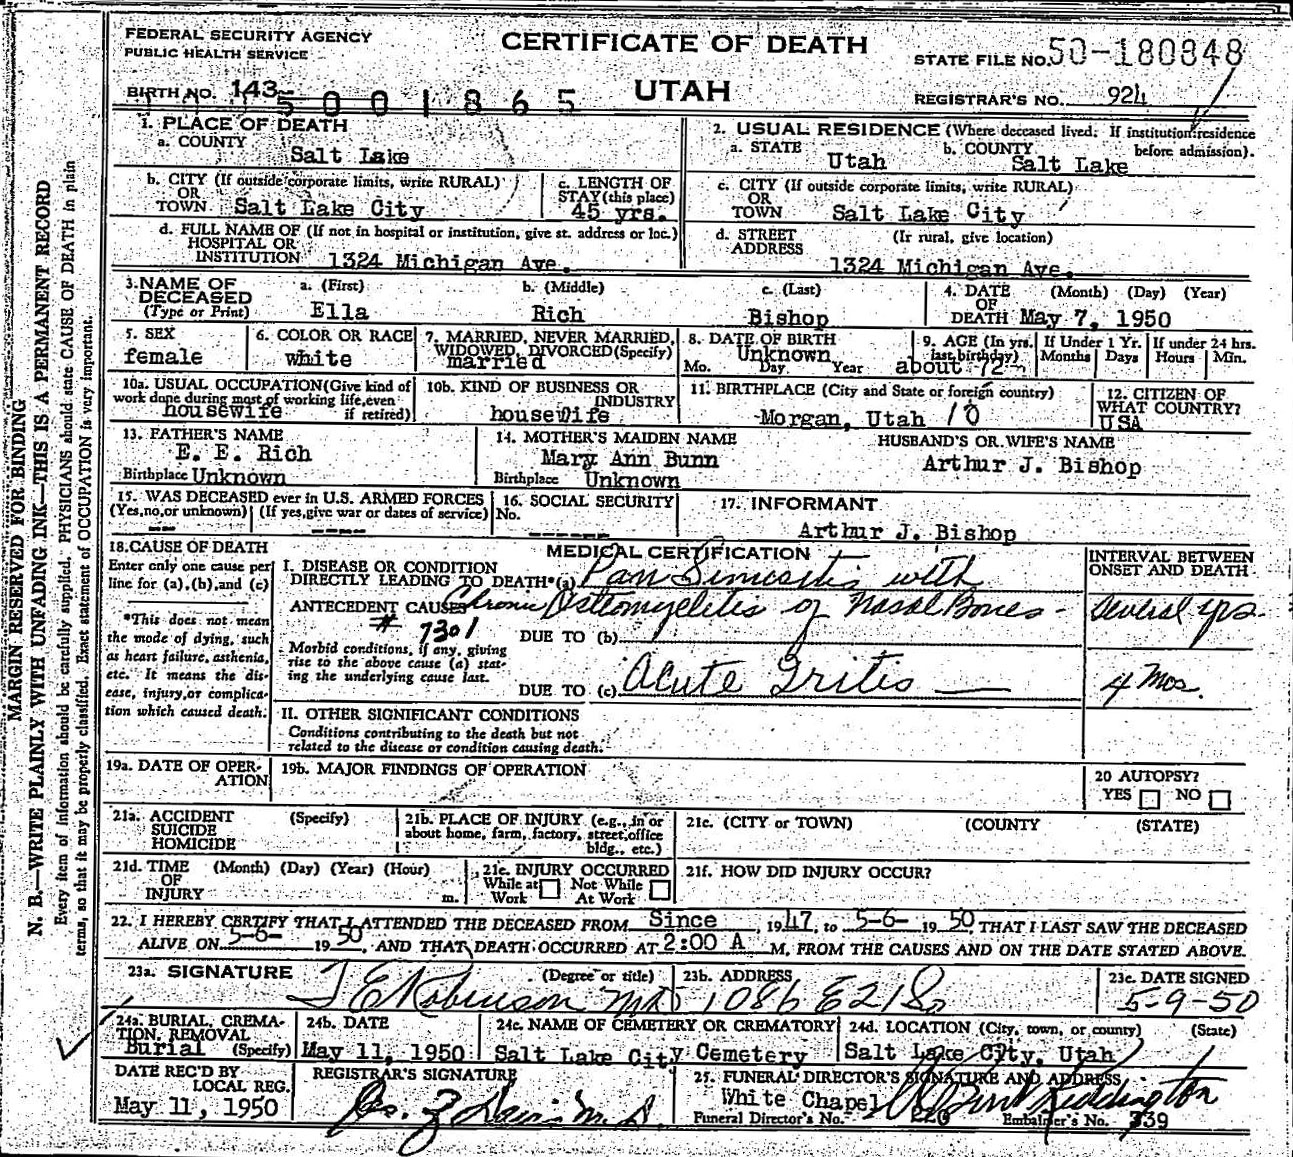 FEDERAL SECURITY AGENCY
PUBLIC HEALTH SERVICE
CERTIFICATE OF DEATH
UTAH
STATE FILE NO. 50-180848
BIRTH NO. 143-
5001865
REGISTRAR'S NO. 924
1. PLACE OF DEATH
a. COUNTY
Salt Lake
2. USUAL RESIDENCE (Where deceased lived. If institution: residence before admission).
a. STATE Utah b. COUNTY Salt Lake
b. CITY (If outside corporate limits, write RURAL)
OR
TOWN Salt Lake City
c. LENGTH OF
STAY (this place)
45 yrs.
c. CITY (If outside corporate limits, write RURAL)
OR
TOWN Salt Lake City
d. FULL NAME OF (If not in hospital or institution, give st. address or loc.)
HOSPITAL OR
INSTITUTION 1324 Michigan Ave.
d. STREET (If rural, give location)
ADDRESS
1324 Michigan Ave.
3. NAME OF
DECEASED
(Type or Print)
a. (First) b. (Middle) c. (Last)
Ella Rich Bishop
4. DATE (Month) (Day) (Year)
OF
DEATH May 7, 1950
5. SEX
female
6. COLOR OR RACE
white
7. MARRIED, NEVER MARRIED,
WIDOWED, DIVORCED (Specify)
married
8. DATE OF BIRTH
Unknown
Mo. Day Year
9. AGE (In yrs. last birthday)
about 72
If Under 1 Yr.
Months Days
If under 24 hrs.
Hours Min.
10a. USUAL OCCUPATION (Give kind of
work done during most of working life, even
if retired)
housewife
10b. KIND OF BUSINESS OR
INDUSTRY
housewife
11. BIRTHPLACE (City and State or foreign country)
Morgan, Utah 10
12. CITIZEN OF
WHAT COUNTRY?
USA
13. FATHER'S NAME
E. E. Rich
Birthplace Unknown
14. MOTHER'S MAIDEN NAME
Mary Ann Bunn
Birthplace Unknown
HUSBAND'S OR WIFE'S NAME
Arthur J. Bishop
15. WAS DECEASED ever in U.S. ARMED FORCES
(Yes, no, or unknown) (If yes, give war or dates of service)
-- ----
16. SOCIAL SECURITY
No.
------
17. INFORMANT
Arthur J. Bishop
18. CAUSE OF DEATH
Enter only one cause per
line for (a), (b), and (c)
*This does not mean
the mode of dying, such
as heart failure, asthenia,
etc. It means the dis-
ease, injury, or complica-
tion which caused death.
MEDICAL CERTIFICATION
I. DISEASE OR CONDITION
DIRECTLY LEADING TO DEATH* (a) Pan Sinusitis with
ANTECEDENT CAUSES Chronic Osteomyelitis of Nasal Bones -
# 7301
DUE TO (b)
Morbid conditions, if any, giving
rise to the above cause (a) stat-
ing the underlying cause last.
DUE TO (c) Acute Iritis
INTERVAL BETWEEN
ONSET AND DEATH
Several yrs.
4 Mos.
II. OTHER SIGNIFICANT CONDITIONS
Conditions contributing to the death but not
related to the disease or condition causing death.
19a. DATE OF OPER-
ATION
19b. MAJOR FINDINGS OF OPERATION
20 AUTOPSY?
YES NO
21a. ACCIDENT (Specify)
SUICIDE
HOMICIDE
21b. PLACE OF INJURY (e.g., in or
about home, farm, factory, street, office
bldg., etc.)
21c. (CITY or TOWN) (COUNTY) (STATE)
21d. TIME (Month) (Day) (Year) (Hour)
OF
INJURY m.
21e. INJURY OCCURRED
While at Work Not While At Work
21f. HOW DID INJURY OCCUR?
22. I HEREBY CERTIFY THAT I ATTENDED THE DECEASED FROM Since, 1947, to 5-6- 1950, THAT I LAST SAW THE DECEASED
ALIVE ON 5-6- 1950, AND THAT DEATH OCCURRED AT 2:00 A M, FROM THE CAUSES AND ON THE DATE STATED ABOVE.
23a. SIGNATURE (Degree or title)
J E Robinson MD
23b. ADDRESS
1086 E 21 So
23c. DATE SIGNED
5-9-50
24a. BURIAL, CREMA-
TION, REMOVAL
Burial (Specify)
24b. DATE
May 11, 1950
24c. NAME OF CEMETERY OR CREMATORY
Salt Lake City Cemetery
24d. LOCATION (City, town, or county) (State)
Salt Lake City, Utah
DATE REC'D BY
LOCAL REG.
May 11, 1950
REGISTRAR'S SIGNATURE
25. FUNERAL DIRECTOR'S SIGNATURE AND ADDRESS
White Chapel
Funeral Director's No. 220 Embalmer's No. 339
MARGIN RESERVED FOR BINDING
N. B.—WRITE PLAINLY WITH UNFADING INK—THIS IS A PERMANENT RECORD
Every item of information should be carefully supplied. PHYSICIANS should state CAUSE OF DEATH in plain
terms, so that it may be properly classified. Exact statement of OCCUPATION is very important.